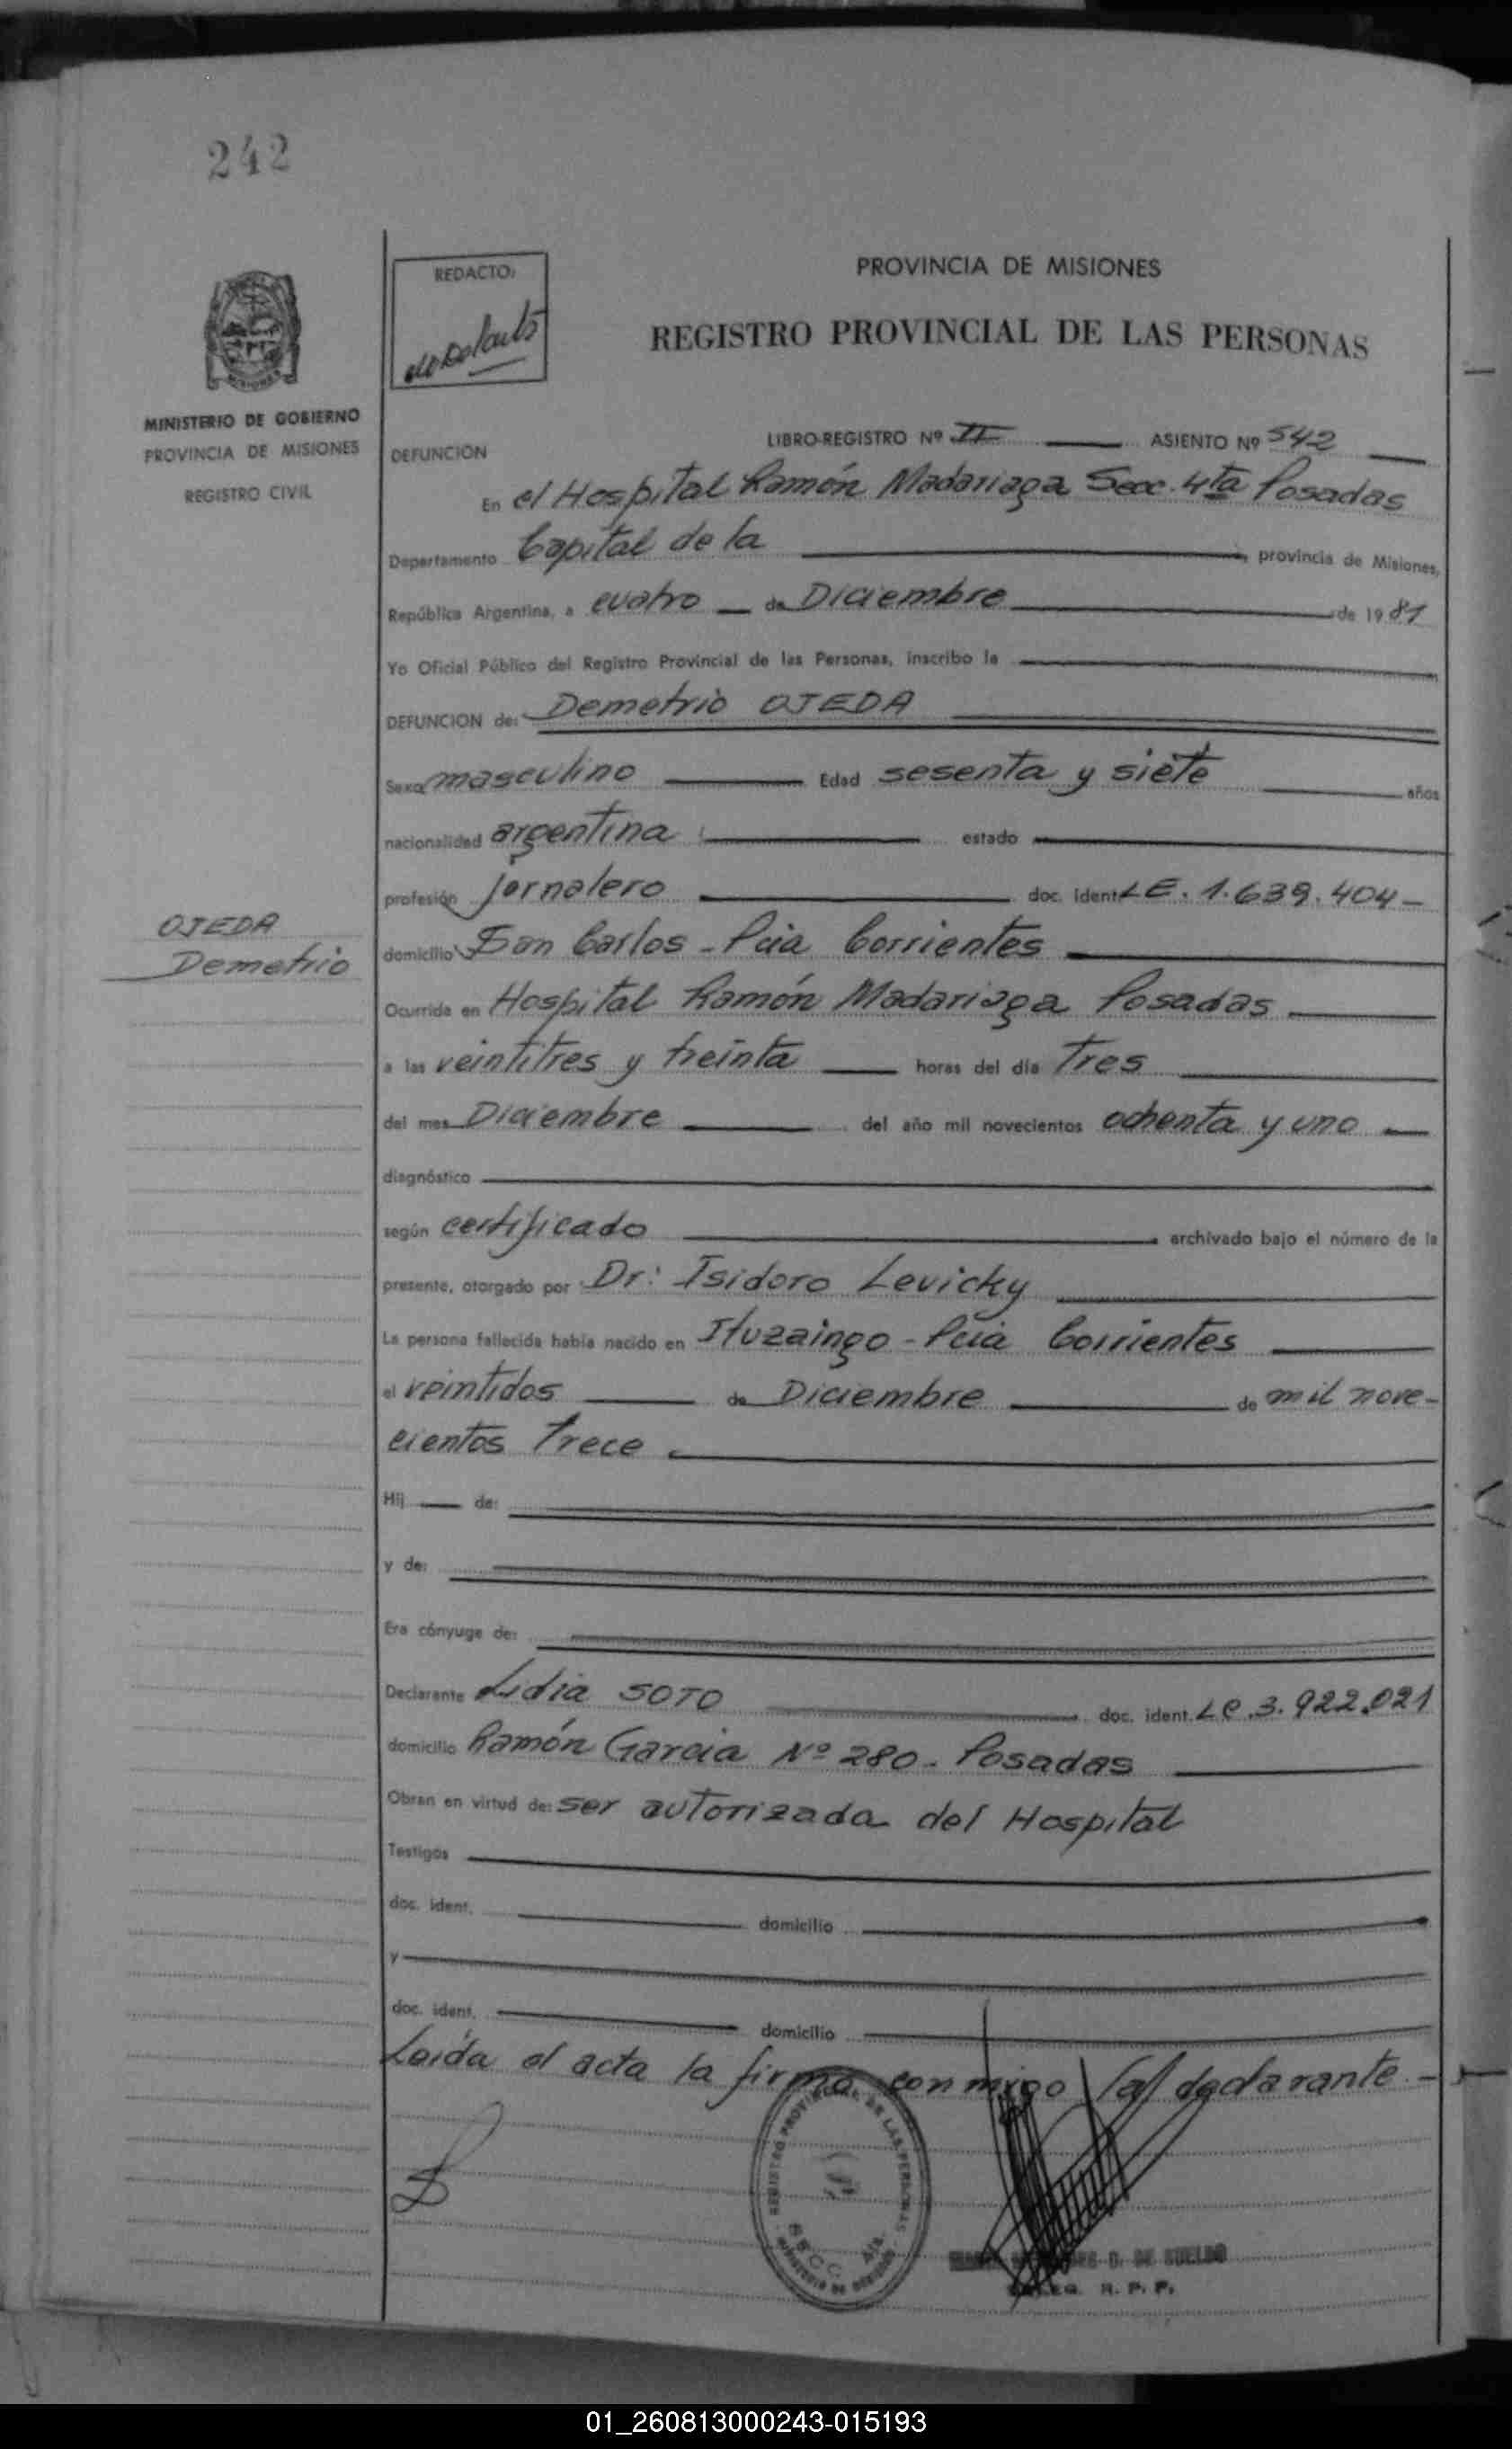 242
REDACTO:
PROVINCIA DE MISIONES
REGISTRO PROVINCIAL DE LAS PERSONAS
MINISTERIO DE GOBIERNO
PROVINCIA DE MISIONES
REGISTRO CIVIL
DEFUNCION
LIBRO-REGISTRO Nº II ASIENTO Nº 542
En el Hospital Ramón Madariaga Secc. 4ta Posadas
Departamento Capital de la , provincia de Misiones,
República Argentina, a cuatro de Diciembre de 1981
Yo Oficial Público del Registro Provincial de las Personas, inscribo la
DEFUNCION de: Demetrio OJEDA
Sexo masculino Edad sesenta y siete años
nacionalidad argentina estado
profesión jornalero doc. ident. LE. 1.639.404-
OJEDA
Demetrio
domicilio San Carlos - Pcia Corrientes
Ocurrida en Hospital Ramón Madariaga Posadas
a las veintitres y treinta horas del día Tres
del mes Diciembre del año mil novecientos ochenta y uno
diagnóstico
según certificado archivado bajo el número de la
presente, otorgado por Dr: Isidoro Levicky
La persona fallecida había nacido en Ituzaingo - Pcia Corrientes
el veintidos de Diciembre de mil nove-
cientos Trece
Hij de:
y de:
Era cónyuge de:
Declarante Lidia SOTO doc. ident. LC.3.922.021
domicilio Ramón Garcia Nº 280. Posadas
Obran en virtud de: ser autorizada del Hospital
Testigos
doc. ident. domicilio
y
doc. ident. domicilio
Leída el acta la firma conmigo /a/ declarante.-
REGISTRO PROVINCIAL DE LAS PERSONAS
SECC. 4ta.
D. DE SUELDO
R. P. P.
01_260813000243-015193